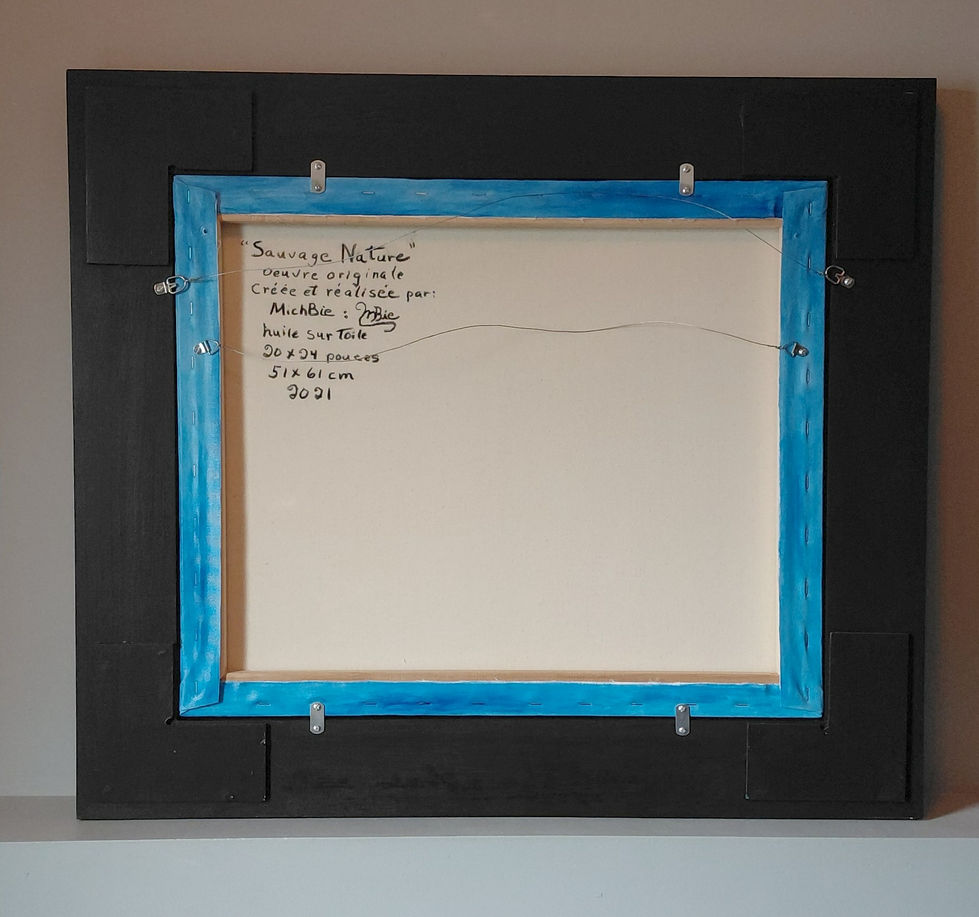 "Sauvage Nature"
Oeuvre originale
Créée et réalisée par:
MichBie : MBie
huile sur Toile
20 x 24 pouces
51 x 61 cm
2021